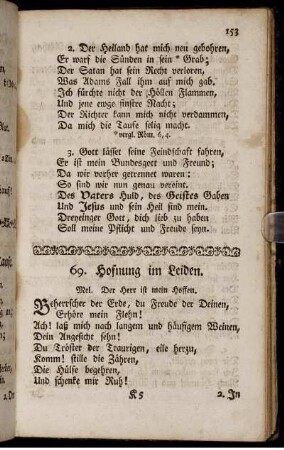 153
2. Der Heiland hat mich neu gebohren,
Er warf die Sünden in sein * Grab;
Der Satan hat sein Recht verloren,
Was Adams Fall ihm auf mich gab.
Ich fürchte nicht der Höllen Flammen,
Und jene ewge finstre Nacht;
Der Richter kann mich nicht verdammen,
Da mich die Taufe selig macht.
* vergl. Röm. 6, 4.
3. Gott lässet seine Feindschaft fahren,
Er ist mein Bundesgott und Freund;
Da wir vorher getrennet waren:
So sind wir nun genau vereint.
Des Vaters Huld, des Geistes Gaben
Und Jesus und sein Heil sind mein.
Dreyeinger Gott, dich lieb zu haben
Soll meine Pflicht und Freude seyn.
69. Hofnung im Leiden.
Mel. Der Herr ist mein Hoffen.
Beherrscher der Erde, du Freude der Deinen,
Erhöre mein Flehn!
Ach! laß mich nach langem und häufigem Weinen,
Dein Angesicht sehn!
Du Tröster der Traurigen, eile herzu,
Komm! stille die Zähren,
Die Hülfe begehren,
Und schenke mir Ruh!
K 5 2. In